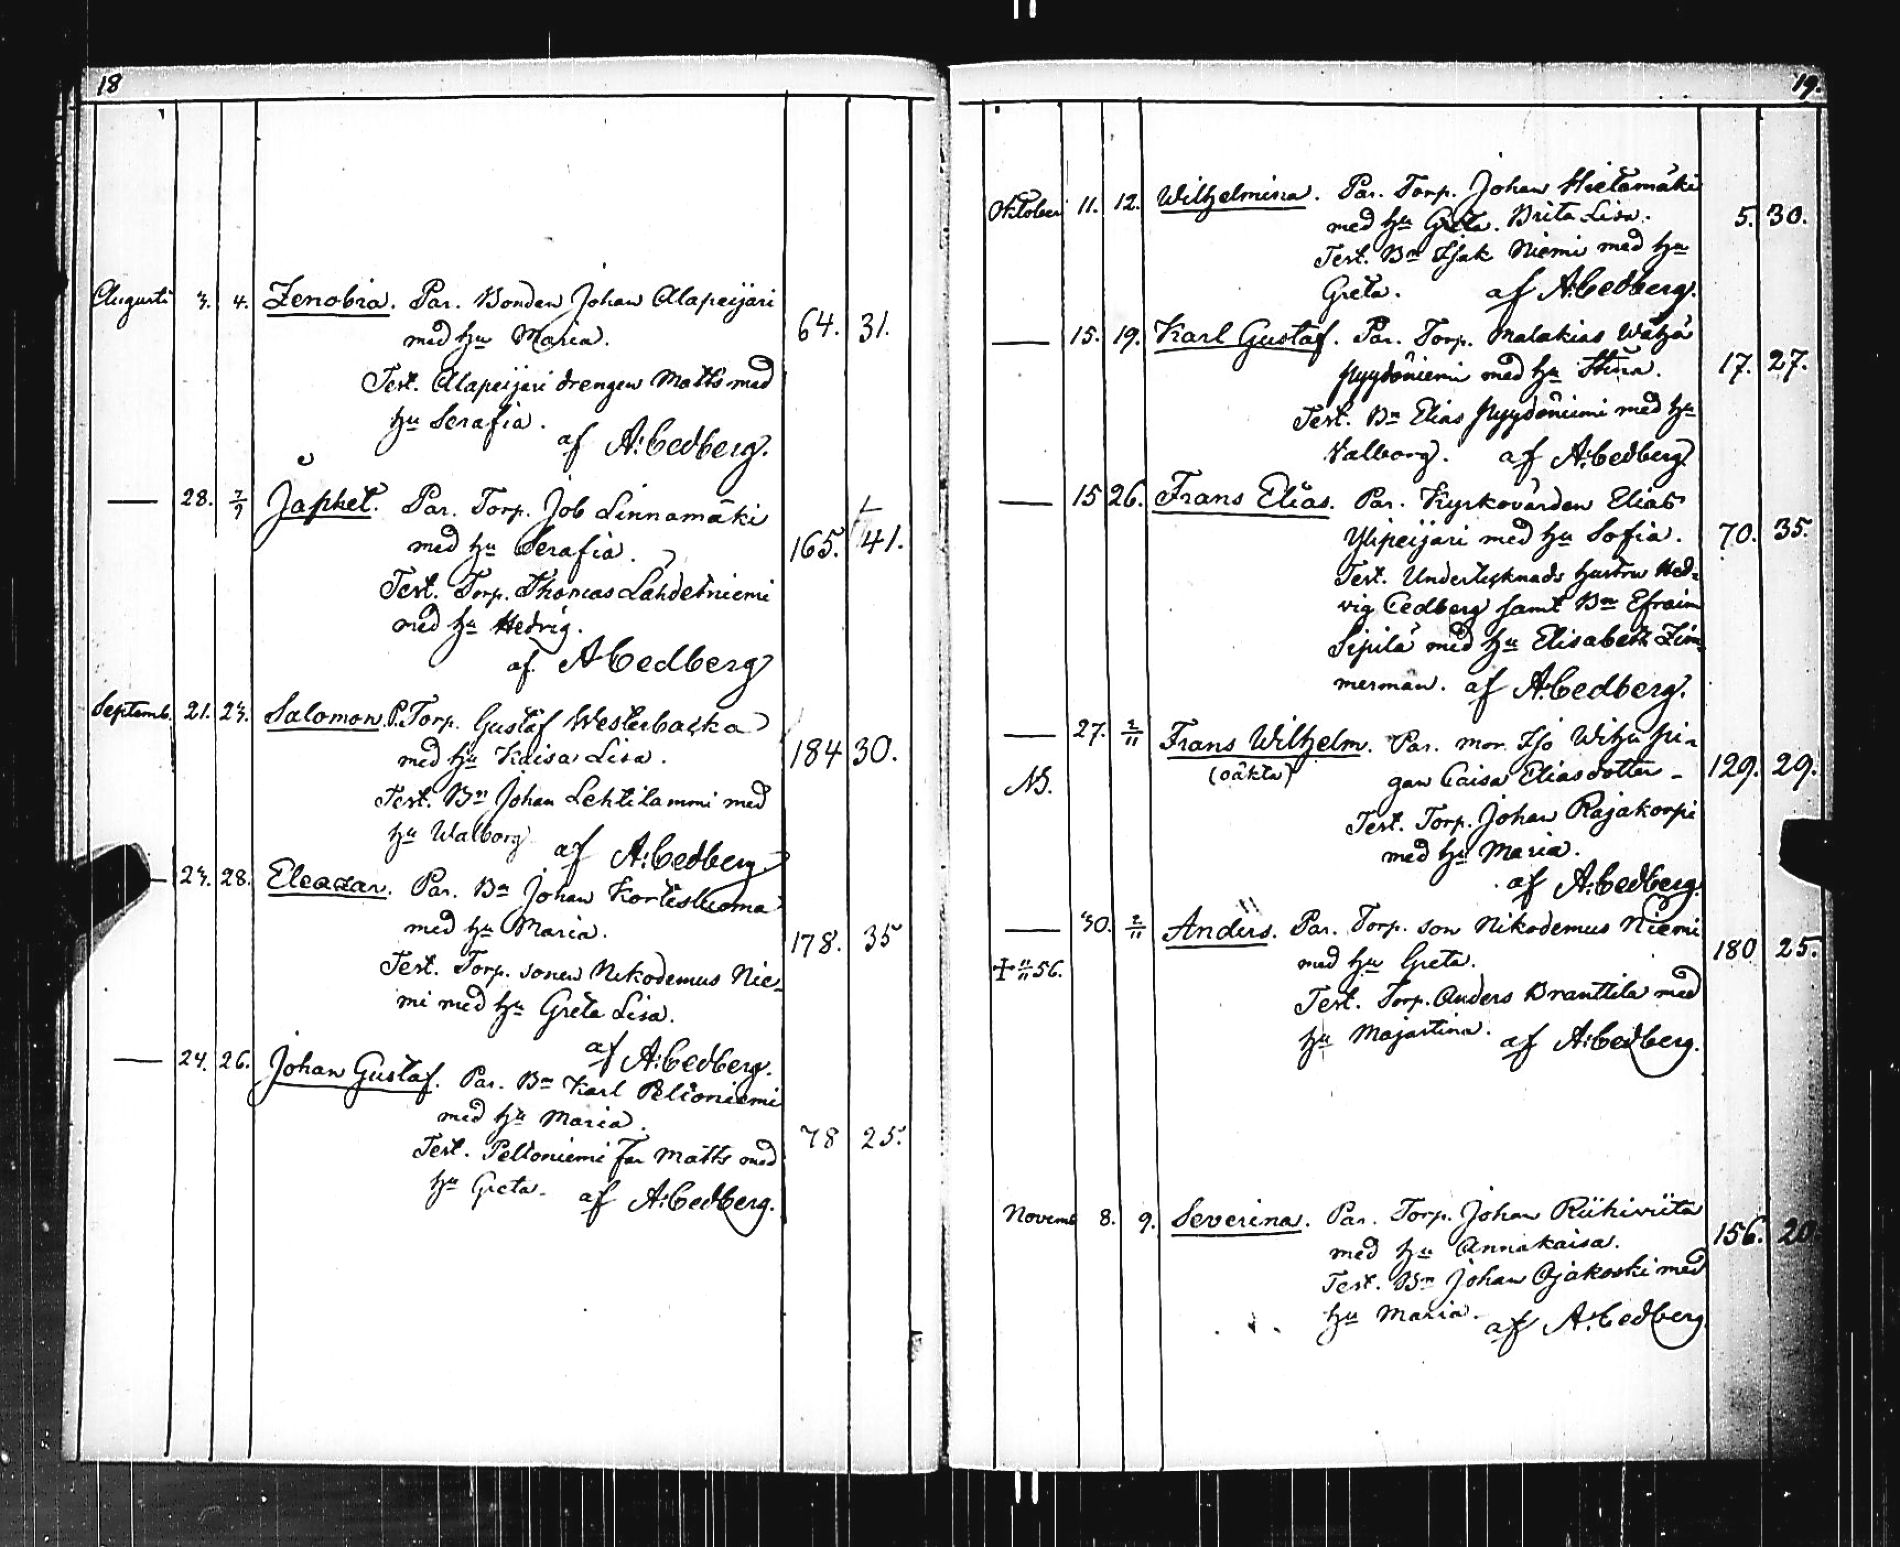 18
Augusti 3. 4. Zenobia. Par. Bonden Johan Alapeijari
med hu Maria. 64. 31.
Test. Alapeijari drengen Matts med
hu Serafia.
af A:Cedberg.
— 28. 7/9 Japhet. Par. Torp. Job Linnamäki
med hu Serafia. 165. 41.
Test. Torp. Thomas Lähdetniemi
med hu Hedvig.
af ACedberg
Septemb. 21. 23. Salomon. P. Torp. Gustaf Westerbacka
med hu Kaisa Lisa. 184 30.
Test. Bn Johan Lehtilammi med
hu Walborg
af A:Cedberg
— 23. 28. Eleazar. Par. Bn Johan Kortesluoma
med hu Maria. 178. 35
Test. Torp. sonen Nikodemus Nie-
mi med hu Greta Lisa.
af A:Cedberg.
— 24. 26. Johan Gustaf. Par. Bn Karl Peltoniemi
med hu Maria. 78 25.
Test. Peltoniemi far Matts med
hu Greta. af A:Cedberg.
19.
Oktober 11. 12. Wilhelmina. Par. Torp. Johan Hietamäki
med hu Greta. Brita Lisa. 5. 30.
Test. Bn Isak Niemi med hu
Greta. af A:Cedberg.
— 15. 19. Karl Gustaf. Par. Torp. Malakias Wähä
Pyydöniemi med hu Stina. 17. 27.
Test. Bn Elias Pyydöniemi med hu
Valborg. af A:Cedberg
— 15 26. Frans Elias. Par. Kyrkovärden Elias
Ylipeijari med hu Sofia. 70. 35.
Test. Undertecknads hustru Hed-
vig Cedberg samt Bn Efraim
Sipilä med hu Elisabeth Zim-
merman. af A:Cedberg.
— 27. 2/11 Frans Wilhelm. Par. mor Isö Witzu Pi-
NB. (oäkta) gan Caisa Eliasdotter - 129. 29.
Test. Torp. Johan Rajakorpi
med hu Maria.
af A:Cedberg.
— 30. 2/11 Anders. Par. Torp. son Nikodemus Niemi
+ 11/11 56. med hu Greta. 180 25.
Test. Torp. Anders Branttila med
hu Majastina. af A:Cedberg.
Novemb 8. 9. Severina. Par. Torp. Johan Riihiviita
med hu Annakaisa. 156. 20
Test. Bn Johan Ojakoski med
hu Maria. af A:Cedberg